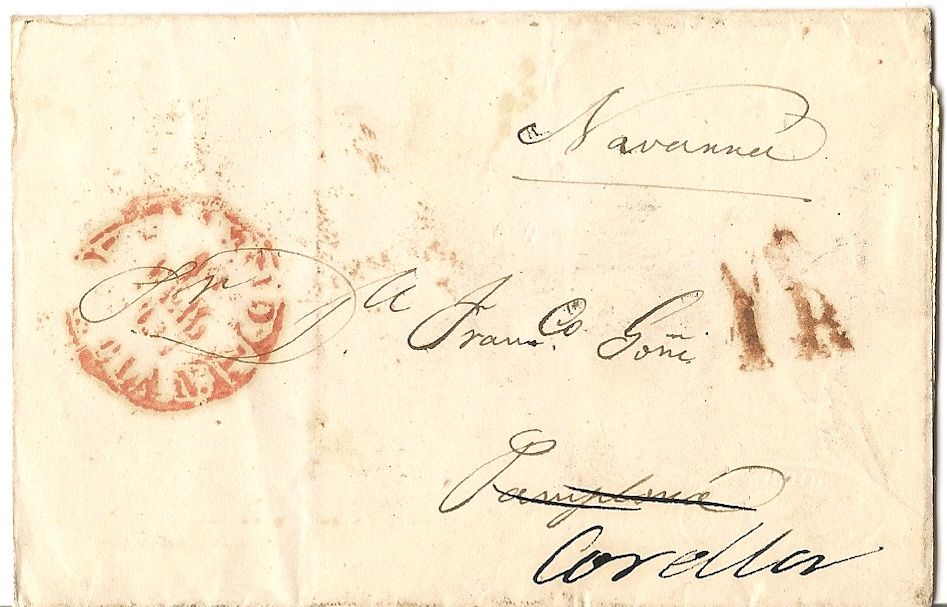 Navarra
Sr. Dn. Franco Goñi
1R
Pamplona
Corella